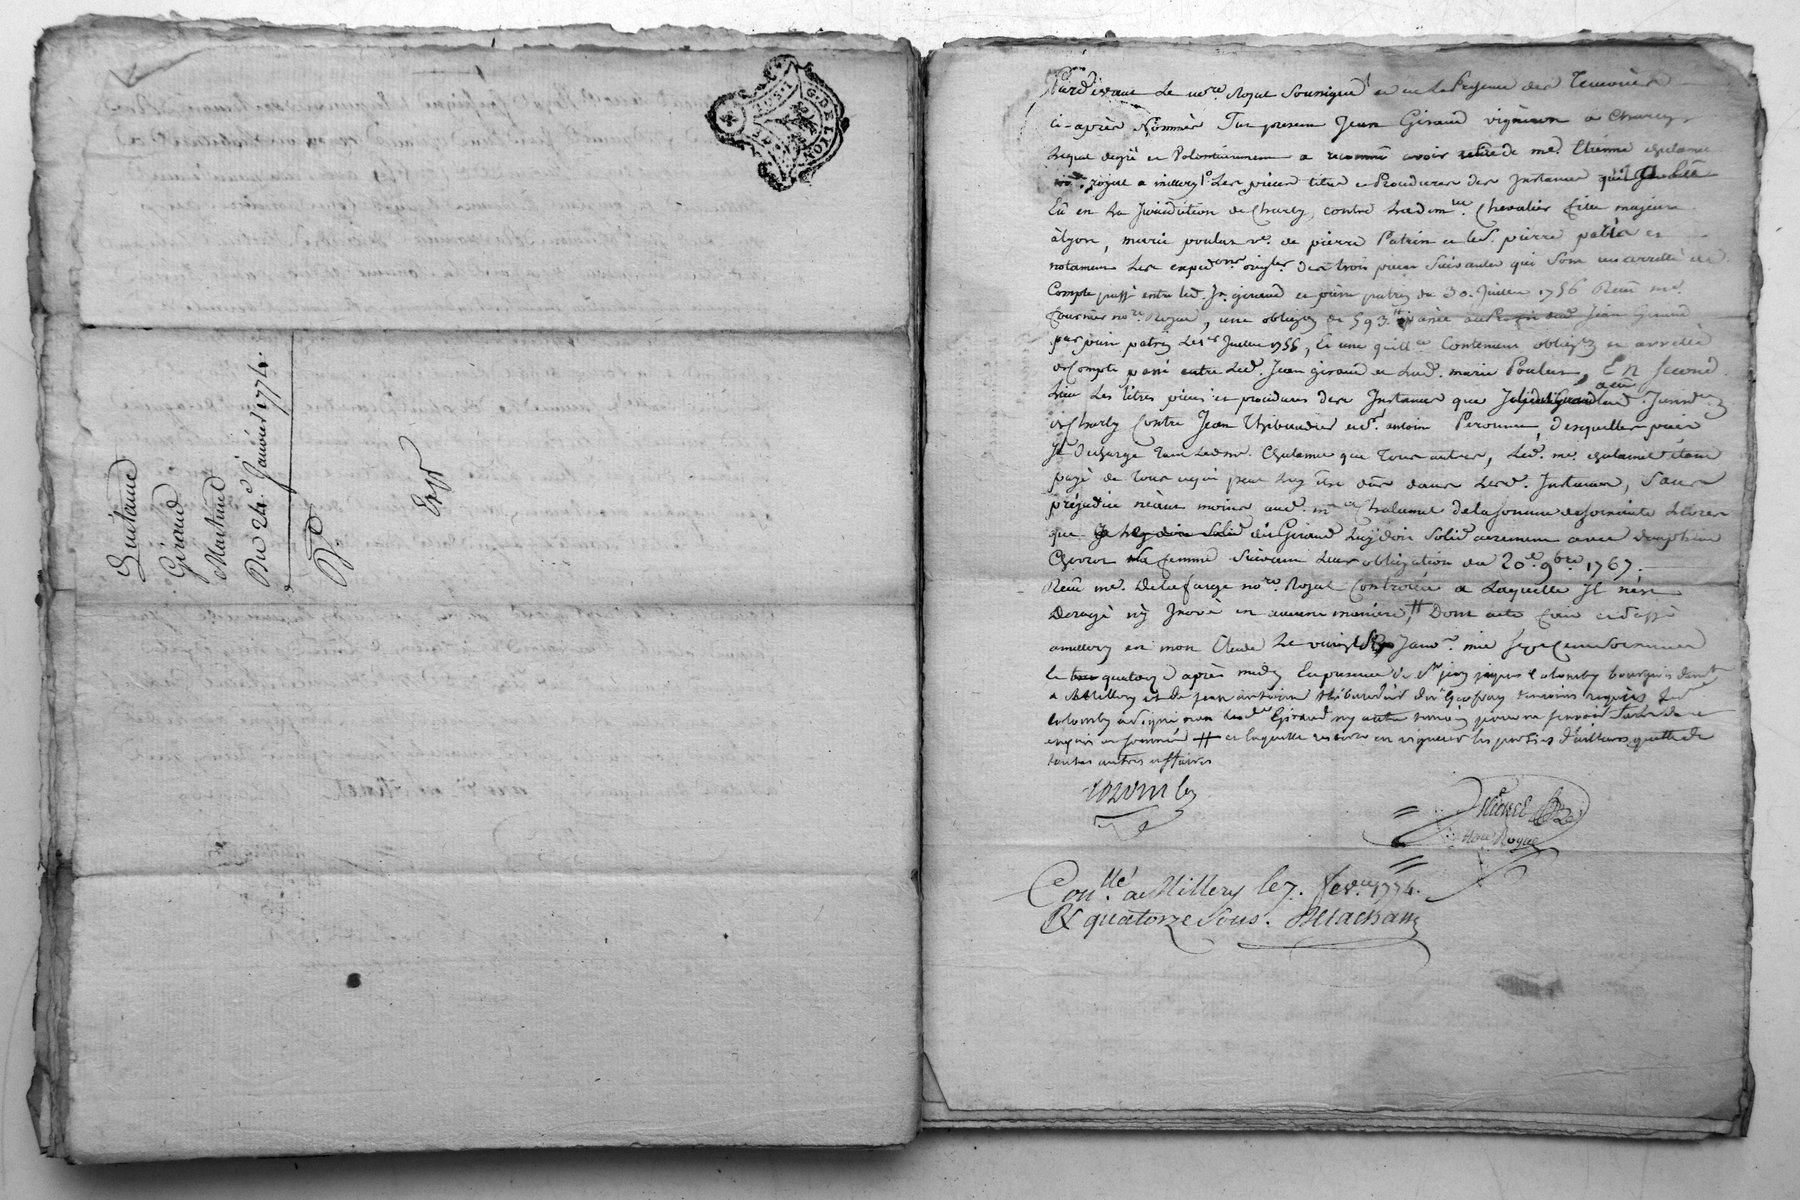 G. DE LYON
Quittance
Giraud
Martinet
Du 24e. Janvier 1774.
Expé
Pardevant Le nore. Royal Soussigné et en La Presence des Temoins
ci-après Nommés Fut present Jean Giraud vigneron a Charly
Lequel degré et Volontairement a reconnu avoir retiré de me. Etienne chalamel
nore. royal a millery 1o. Les pieces titres et Procedures des Instances quil a
Eu en La Jurisdiction de Charly, contre Lad. mlle. Chevalier fille majeure
àlyon, marie poulus ve. de pierre Patrin et led. pierre patrin et
notament Les expedons. origles. des trois pieces Suivantes qui Sont un arrêté de
Compte passé entre led. Jn. giraud et pierre patrin du 30. Juillet 1756 Reçu me.
fournier nore. Royal, une obligon de 593.# Jean Giraud
par pierre patrin Le 1er Juillet 1756, Et une quittce. Contenant obligon et arrêté
de Compte passé entre Led. Jean giraud et Lad. marie Poulus, En second
Lieu Les titres pieces et procedures des Instances que a eu en lad. Jurisdon
de Charly Contre Jean Thibaudier et Sr. antoine Peronnet, desquelles pieces
Il decharge Tant Led. me. Chalamel que Tous autres, Led. me. chalamel étant
payé de Tout ce qui peut luy être dû dans Lesd. Instances, Sans
préjudice néant moins aud. me. chalamel de la somme de soixante Livres
que led. Giraud Luy doit Solidairement avec
sa femme Suivant Leur obligation du 20e. 9bre 1767.
Reçu me. Delafarge nore. Royal Controllée a Laquelle Il n'est
Derogé ny Innové en aucune maniere, # Dont acte fait et passé
amillery en mon Etude Le vingt Janvr. mil sept cent soixante
et quatorze après midy En presence de Sr. jean jaques Colomby bourgeois demt.
a Millery et de jean antoine thibaudier de temoins requis Led. Sr.
colomby a signé non Led. Giraud ny autre temoin pour ne sçavoir faire de ce
enquis et sommé # et laquelle restera en vigueur les parties d'ailleurs quitte de
toutes autres affaires
Colomby
nore. Royal
Conllé. a Millery le 7. fevr. 1774.
R quatorze sous.